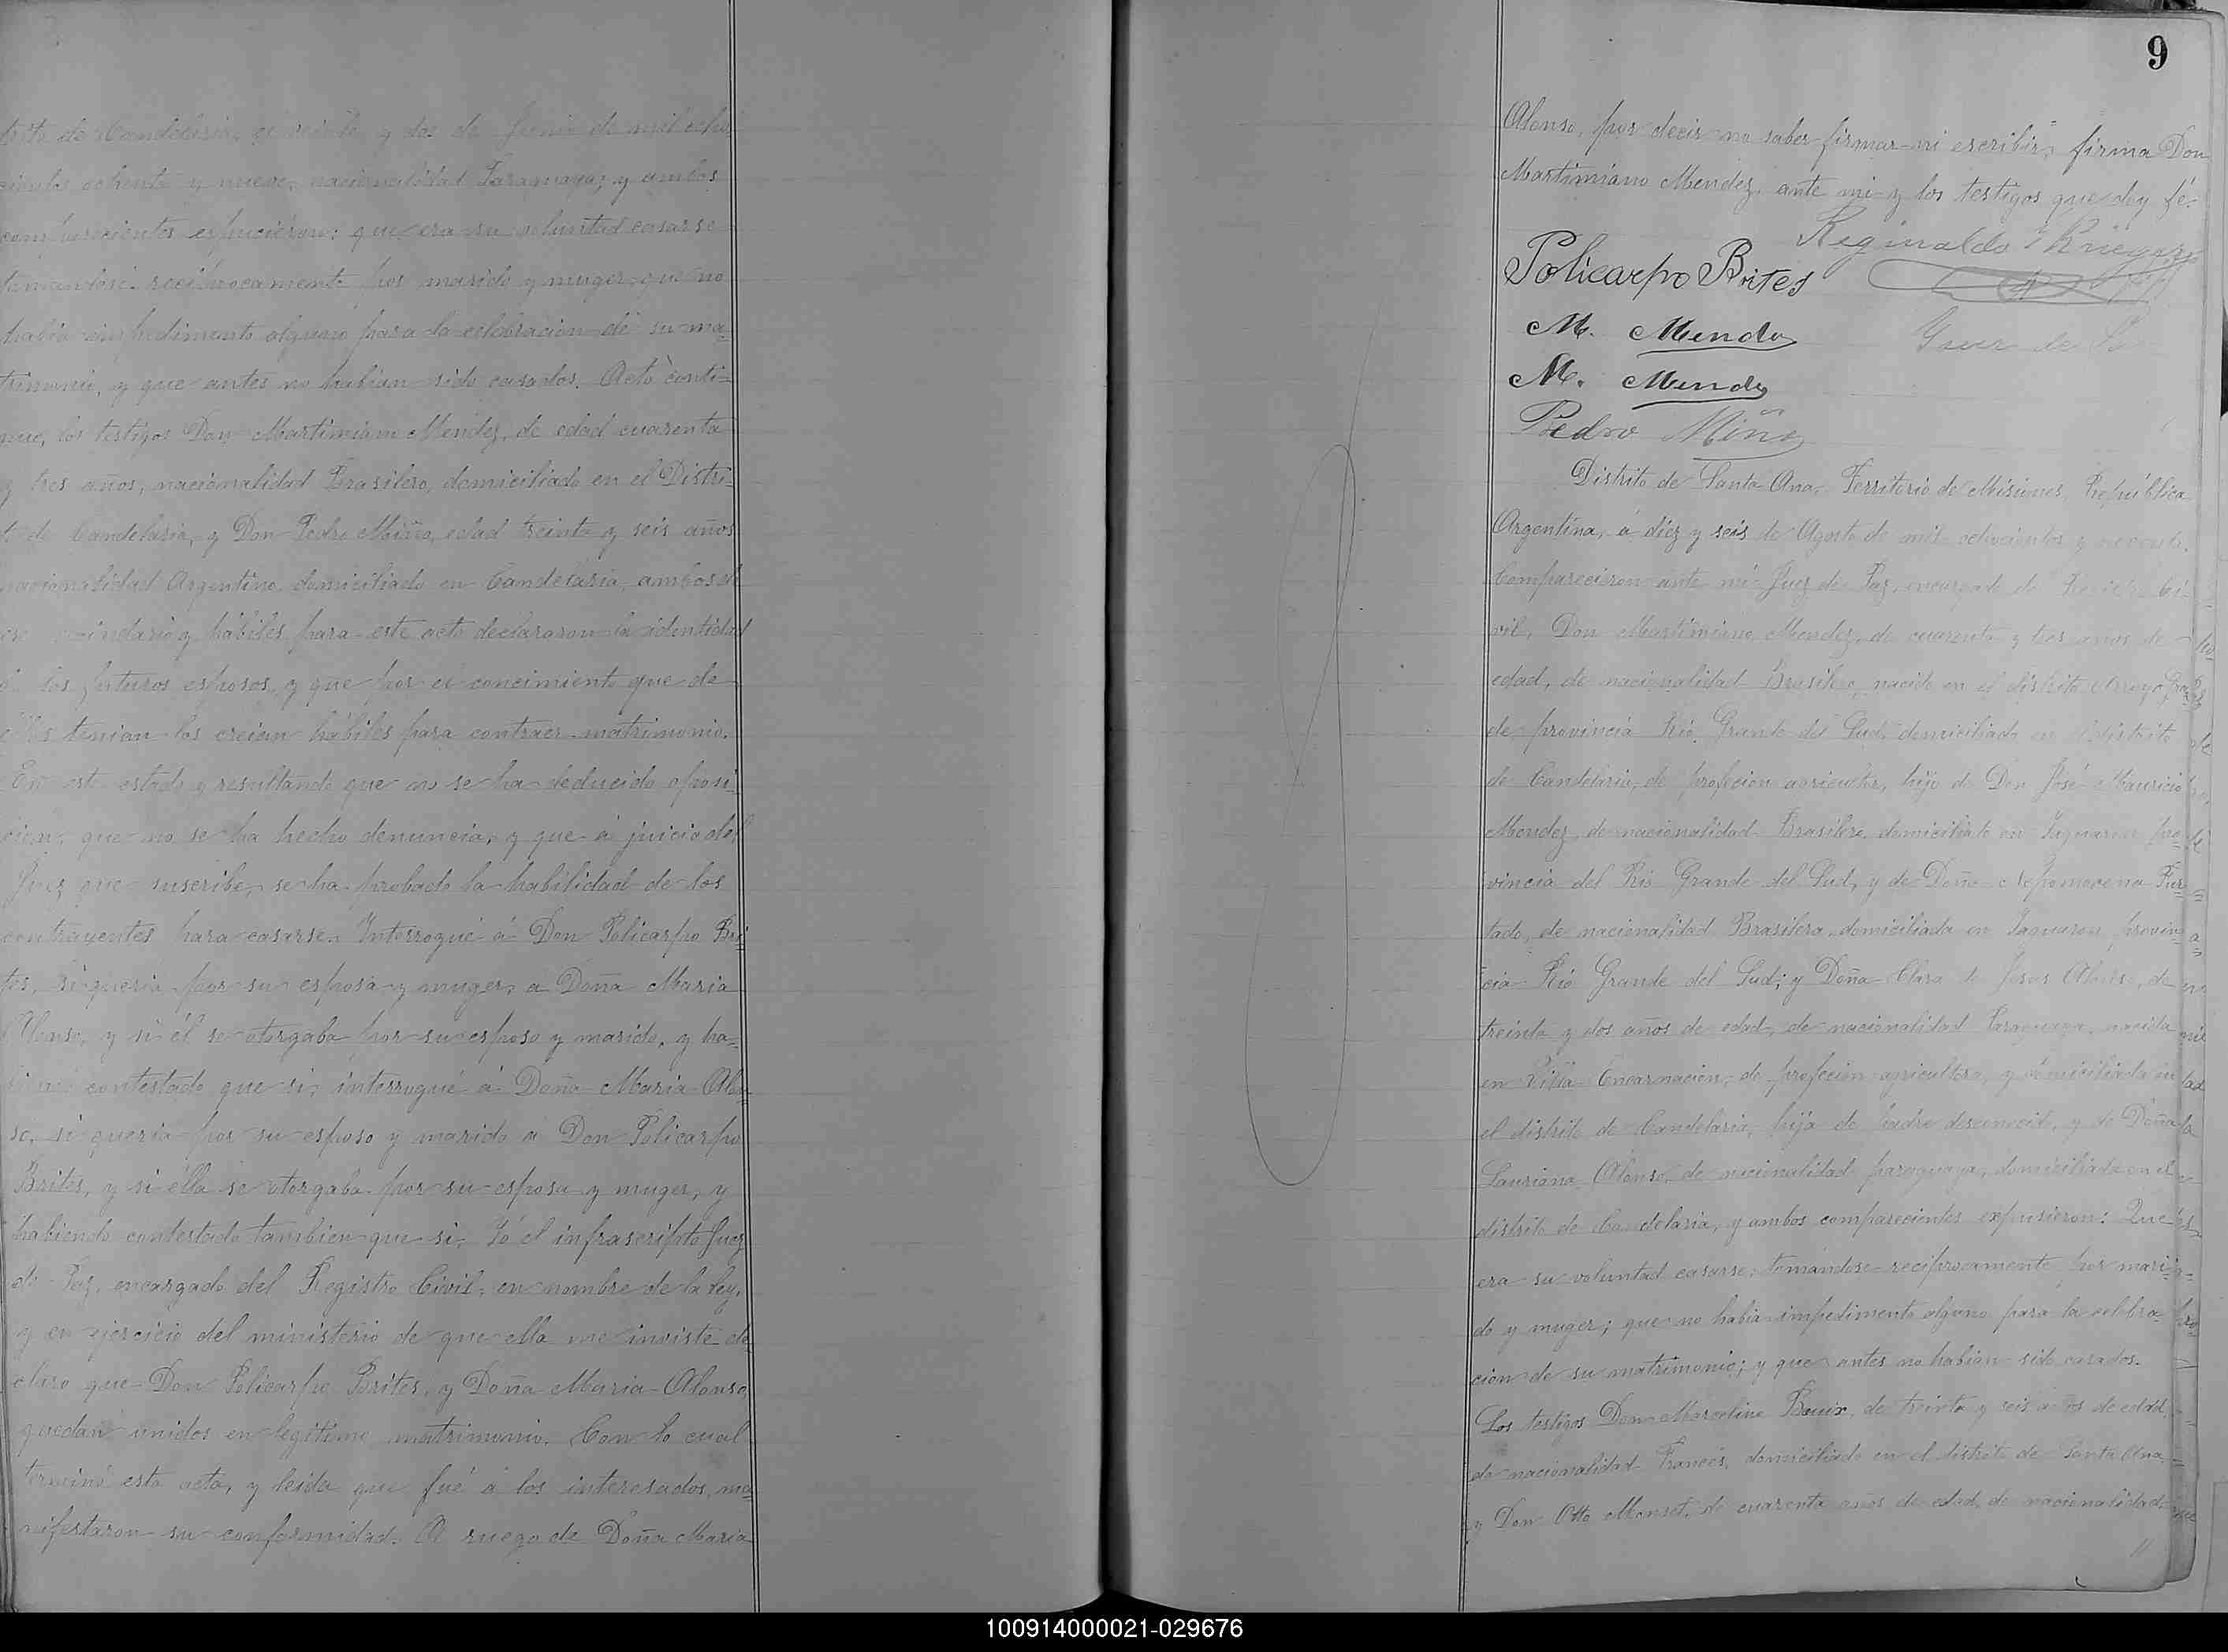 trito de Candelaria, veinte y dos de Junio de mil ocho-
cientos ochenta y nueve, nacionalidad Paraguaya; y ambos
comparecientes espucieron: que era su voluntad casarse
tomandose reciprocamente por marido y muger, que no
habia impedimento alguno para la celebracion de su ma-
trimonio, y que antes no habian sido casados. Acto conti-
nuo, los testigos Don Martimiano Mendez, de edad cuarenta
y tres años, nacionalidad Brasilero, domiciliado en el Distri-
to de Candelaria, y Don Pedro Miño, edad treinta y seis años
nacionalidad Argentino, domiciliado en Candelaria, ambos de
vecindario y hábiles para este acto declararon la identidad
de los futuros esposos, y que por el concimiento que de
ellos tenian los creian hábiles para contraer matrimonio.
En este estado y resultando que no se ha deducido oposi-
cion, que no se ha hecho denuncia, y que á juicio del
Juez que suscribe, se ha probado la habilidad de los
contrayentes para casarse. Interrogué á Don Policarpo Bri-
tes, si queria por su esposa y muger, a Doña Maria
Alonso, y si él se otorgaba por su esposo y marido, y ha-
biendo contestado que si; interrogué á Doña Maria Alon-
so, si queria por su esposo y marido a Don Policarpo
Brites, y si élla se otorgaba por su esposa y muger, y
habiendo contestado tambien que si, Yó el infrascripto Juez
de Paz, encargado del Registro Civil, en nombre de la ley,
y en ejercicio del ministerio de que ella me inviste de-
claro que Don Policarpo Brites, y Doña Maria Alonso,
quedan unidos en legitimo matrimonio. Con lo cual
terminó esta acta, y leida que fué á los interesados, ma-
nifestaron su conformidad. A ruego de Doña Maria
9
Alonso, por decir no saber firmar ni escribir, firma Don
Martimiano Mendez, ante mi y los testigos que doy fé.
Reginaldo Krieger
Policarpo Brites
M. Mendez
Juez de Paz
M. Mendez
Pedro Miño
Distrito de Santa Ana, Territorio de Misiones, República
Argentina, á diez y seis de Agosto de mil ochocientos y noventa.
Comparecieron ante mi Juez de Paz, encargado de Registro Ci-
vil, Don Martimiano Mendez, de cuarenta y tres años de
edad, de nacionalidad Brasilero, nacido en el distrito Arroyo Gran-
de, provincia Rio Grande del Sud, domiciliado en el distrito
de Candelaria, de profecion agricultor, hijo de Don José Mauricio
Mendez, de nacionalidad Brasilero, domiciliado en Yaguaron, pro-
vincia del Rio Grande del Sud, y de Doña Nepomocena Fur-
tado, de nacionalidad Brasilera, domiciliada en Yaguaron, provin-
cia Rio Grande del Sud; y Doña Clara de Jesus Alonso, de
treinta y dos años de edad, de nacionalidad Paraguaya, nacida
en Villa Encarnacion, de profecion agricultora, y domiciliada en
el distrito de Candelaria, hija de padre desconocido, y de Doña
Lauriana Alonso, de nacionalidad paraguaya, domiciliada en el
distrito de Candelaria, y ambos comparecientes expusieron: Que
era su voluntad casarse, tomandose reciprocamente por mari-
do y muger; que no habia impedimento alguno para la celebra-
cion de su matrimonio; y que antes no habian sido casados.
Los testigos Don Marcelino Bouix, de treinta y seis años de edad,
de nacionalidad Francés, domiciliado en el distrito de Santa Ana,
y Don Otto de cuarenta años de edad, de nacionalidad
100914000021-029676